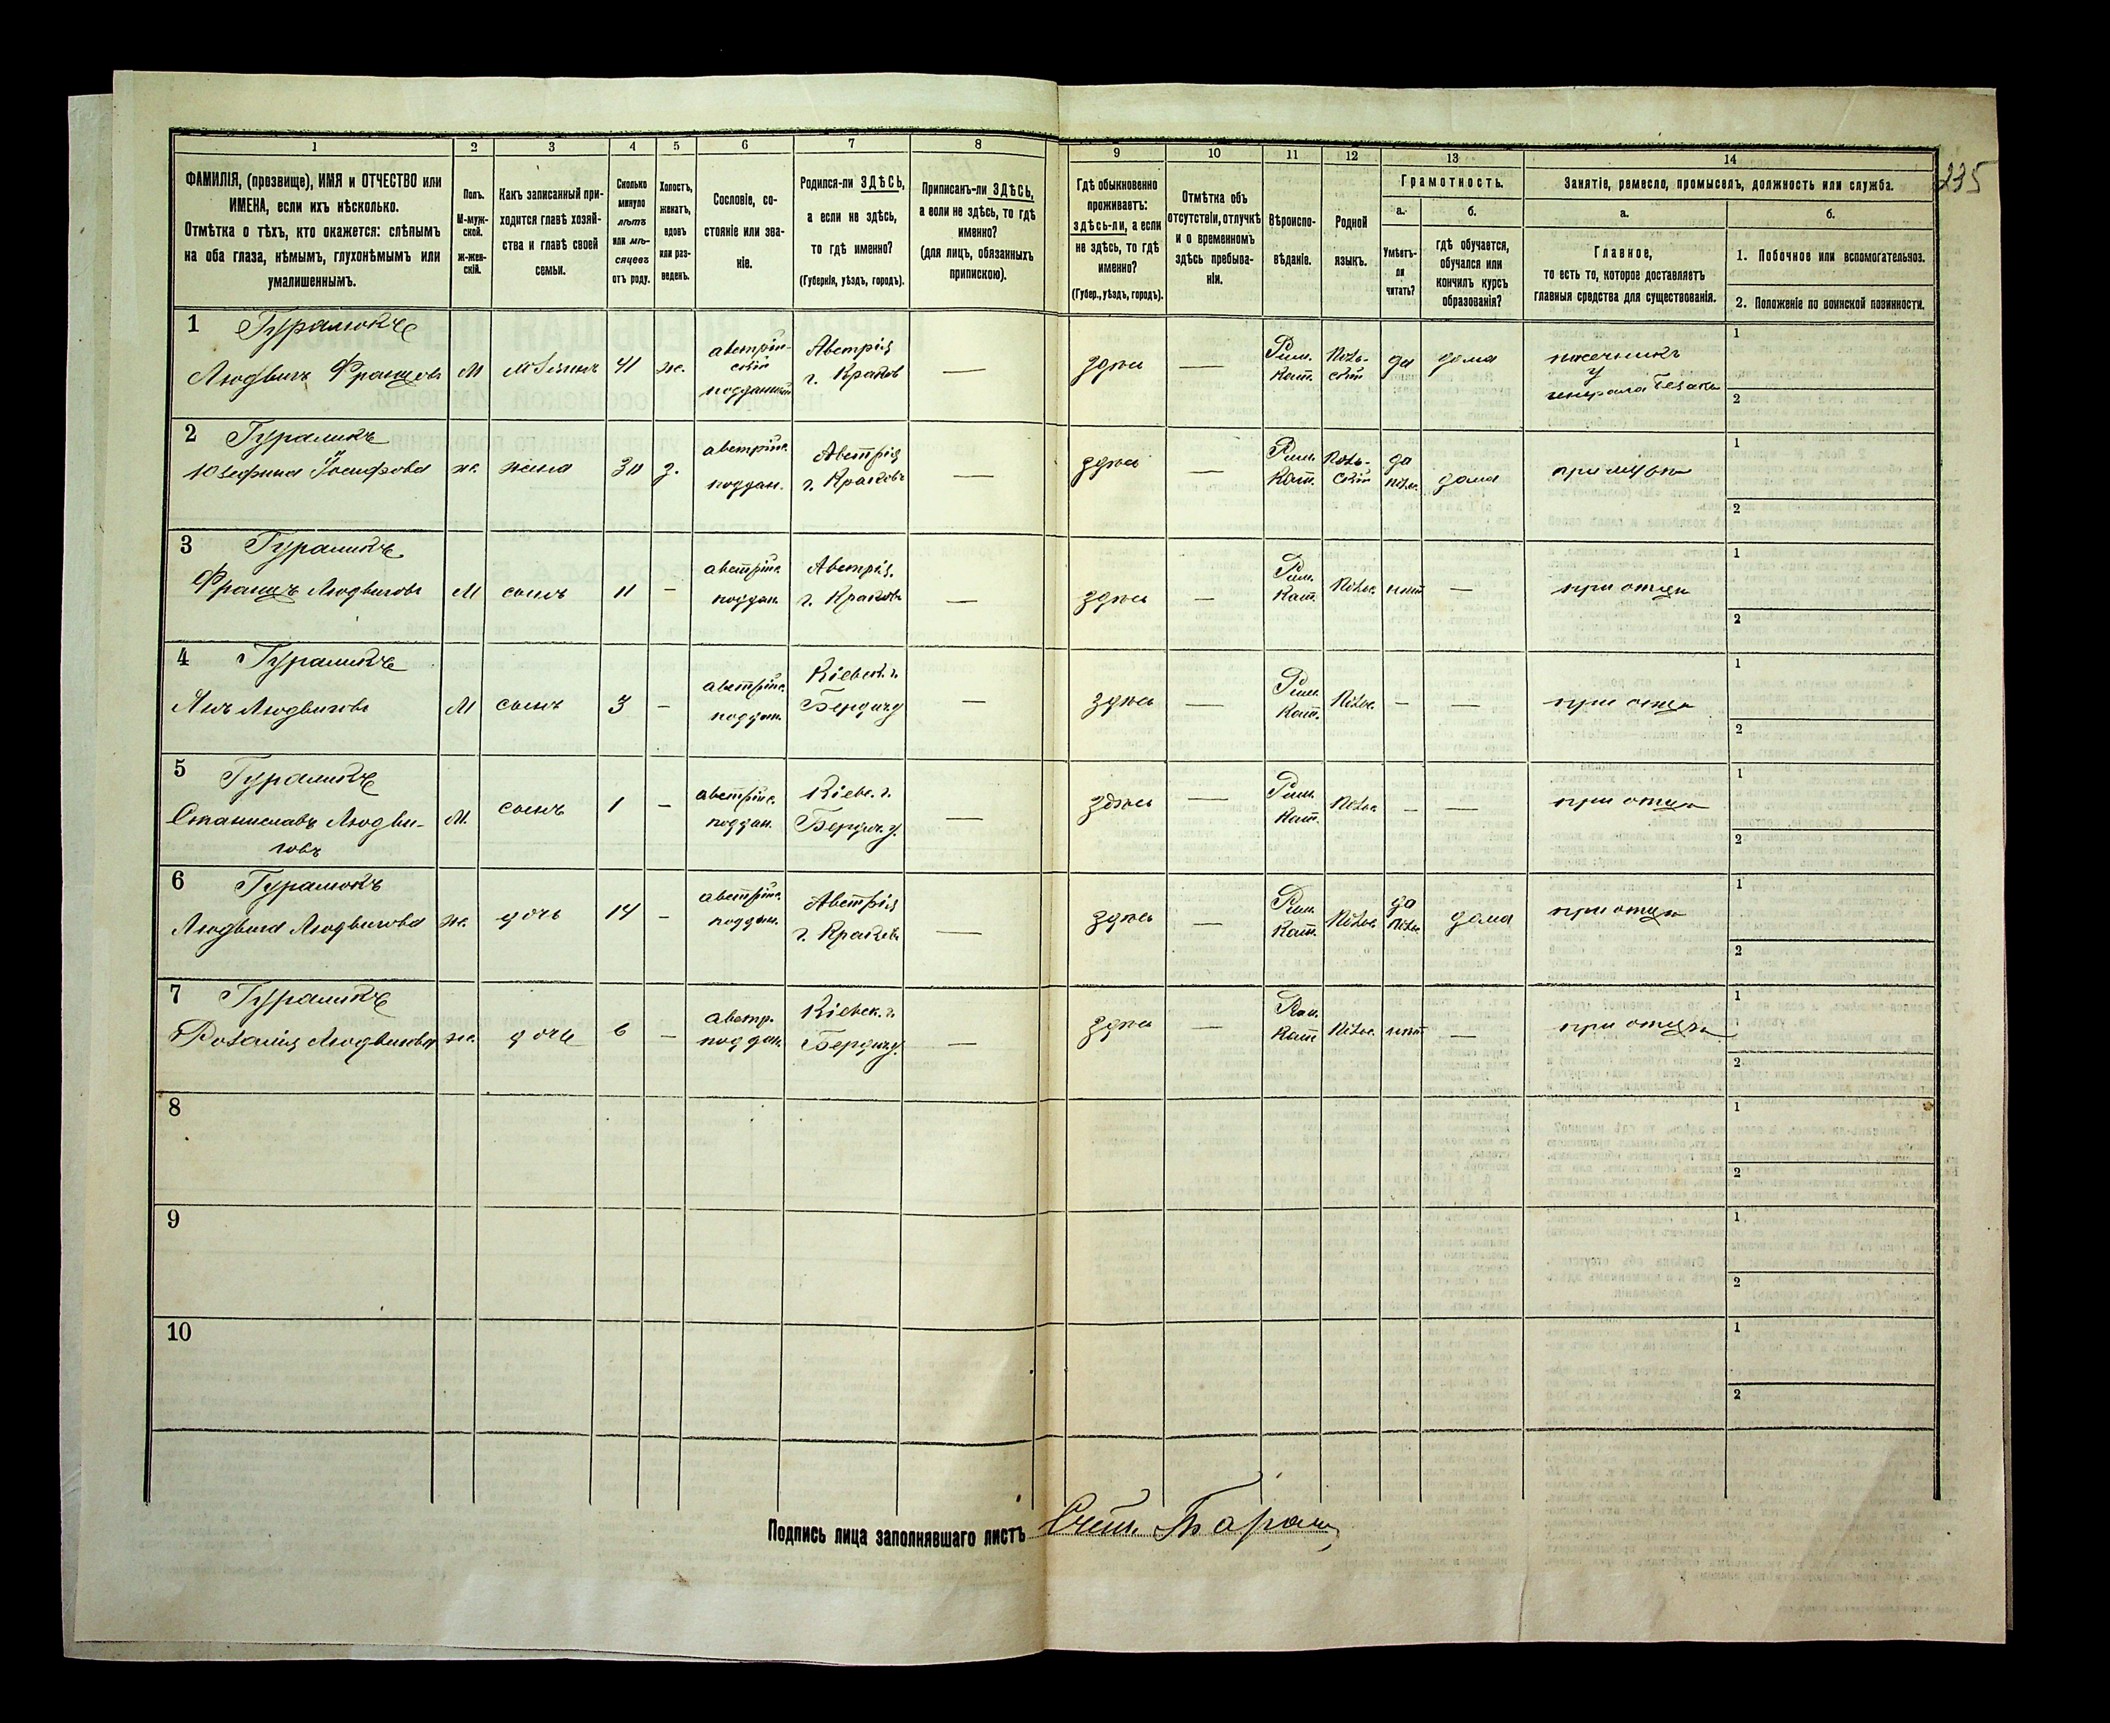 235
1 2 3 4 5 6 7 8 9 10 11 12 13 14
ФАМИЛІЯ, (прозвище), ИМЯ и ОТЧЕСТВО или
ИМЕНА, если ихъ нѣсколько.
Отмѣтка о тѣхъ, кто окажется: слѣпымъ
на оба глаза, нѣмымъ, глухонѣмымъ или
умалишеннымъ.
Полъ.
М-муж-
ской.
ж-жен-
скій.
Какъ записанный при-
ходится главѣ хозяй-
ства и главѣ своей
семьи.
Сколько
минуло
лѣтъ
или мѣ-
сяцевъ
отъ роду.
Холостъ,
женатъ,
вдовъ
или раз-
веденъ.
Сословіе, со-
стояніе или зва-
ніе.
Родился-ли ЗДѢСЬ,
а если не здѣсь,
то гдѣ именно?
(Губернія, уѣздъ, городъ).
Приписанъ-ли ЗДѢСЬ,
а если не здѣсь, то гдѣ
именно?
(для лицъ, обязанныхъ
припискою).
Гдѣ обыкновенно
проживаетъ:
здѣсь-ли, а если
не здѣсь, то гдѣ
именно?
(Губер., уѣздъ, городъ).
Отмѣтка объ
отсутствіи, отлучкѣ
и о временномъ
здѣсь пребыва-
ніи.
Вѣроиспо-
вѣданіе.
Родной
языкъ.
Грамотность.
а. б.
Умѣетъ-
ли
читать?
гдѣ обучается,
обучался или
кончилъ курсъ
образованія?
Занятіе, ремесло, промыселъ, должность или служба.
а. б.
Главное,
то есть то, которое доставляетъ
главныя средства для существованія.
1. Побочное или вспомогательное.
2. Положеніе по воинской повинности.
1
Людвигъ
М
41
ж.
австрій-
скій
подданный
Австрія
г. Краков
—
здѣсь
—
Рим.
Кат.
поль-
скій
да
дома
пасечникъ
у
1
2
2 Гураликъ
Юзефина Іосифова
ж.
жена
з.
австрійс.
поддан.
Австрія
г. Краковъ
—
здѣсь
—
Рим.
Кат.
поль-
скій
да
польс.
дома
при мужѣ
1
2
3 Гураликъ
Францъ Людвиговъ
М
сынъ
11
—
австрійс.
поддан.
Австрія.
г. Краковъ
—
здѣсь
—
Рим.
Кат.
польс.
нѣт
—
при отцѣ
1
2
4 Гураликъ
Янъ Людвиговъ
М
сынъ
3
—
австрійс.
поддан.
Кіевск. г.
Бердич у
—
здѣсь
—
Рим.
Кат.
польс.
—
—
при отцѣ
1
2
5 Гураликъ
Станиславъ Людви-
говъ
М.
сынъ
1
—
австрійс.
поддан.
Кіевс. г.
Бердич. у.
—
здѣсь
—
Рим.
Кат.
польс.
—
—
при отцѣ
1
2
6 Гураликъ
Людвига Людвигова
ж.
дочь
14
—
австрійс.
поддан.
Австрія
г. Краковъ
—
здѣсь
—
Рим.
Кат.
польс.
да
польс.
дома
при отцѣ
1
2
7 Гураликъ
Розалія Людвигова
ж.
дочь
6
—
австр.
поддан.
Кіевск. г.
Бердич у.
—
здѣсь
—
Рим.
Кат
польс.
нѣт
—
при отцѣ
1
2
8
1
2
9
1
2
10
1
2
Подпись лица заполнявшаго листъ